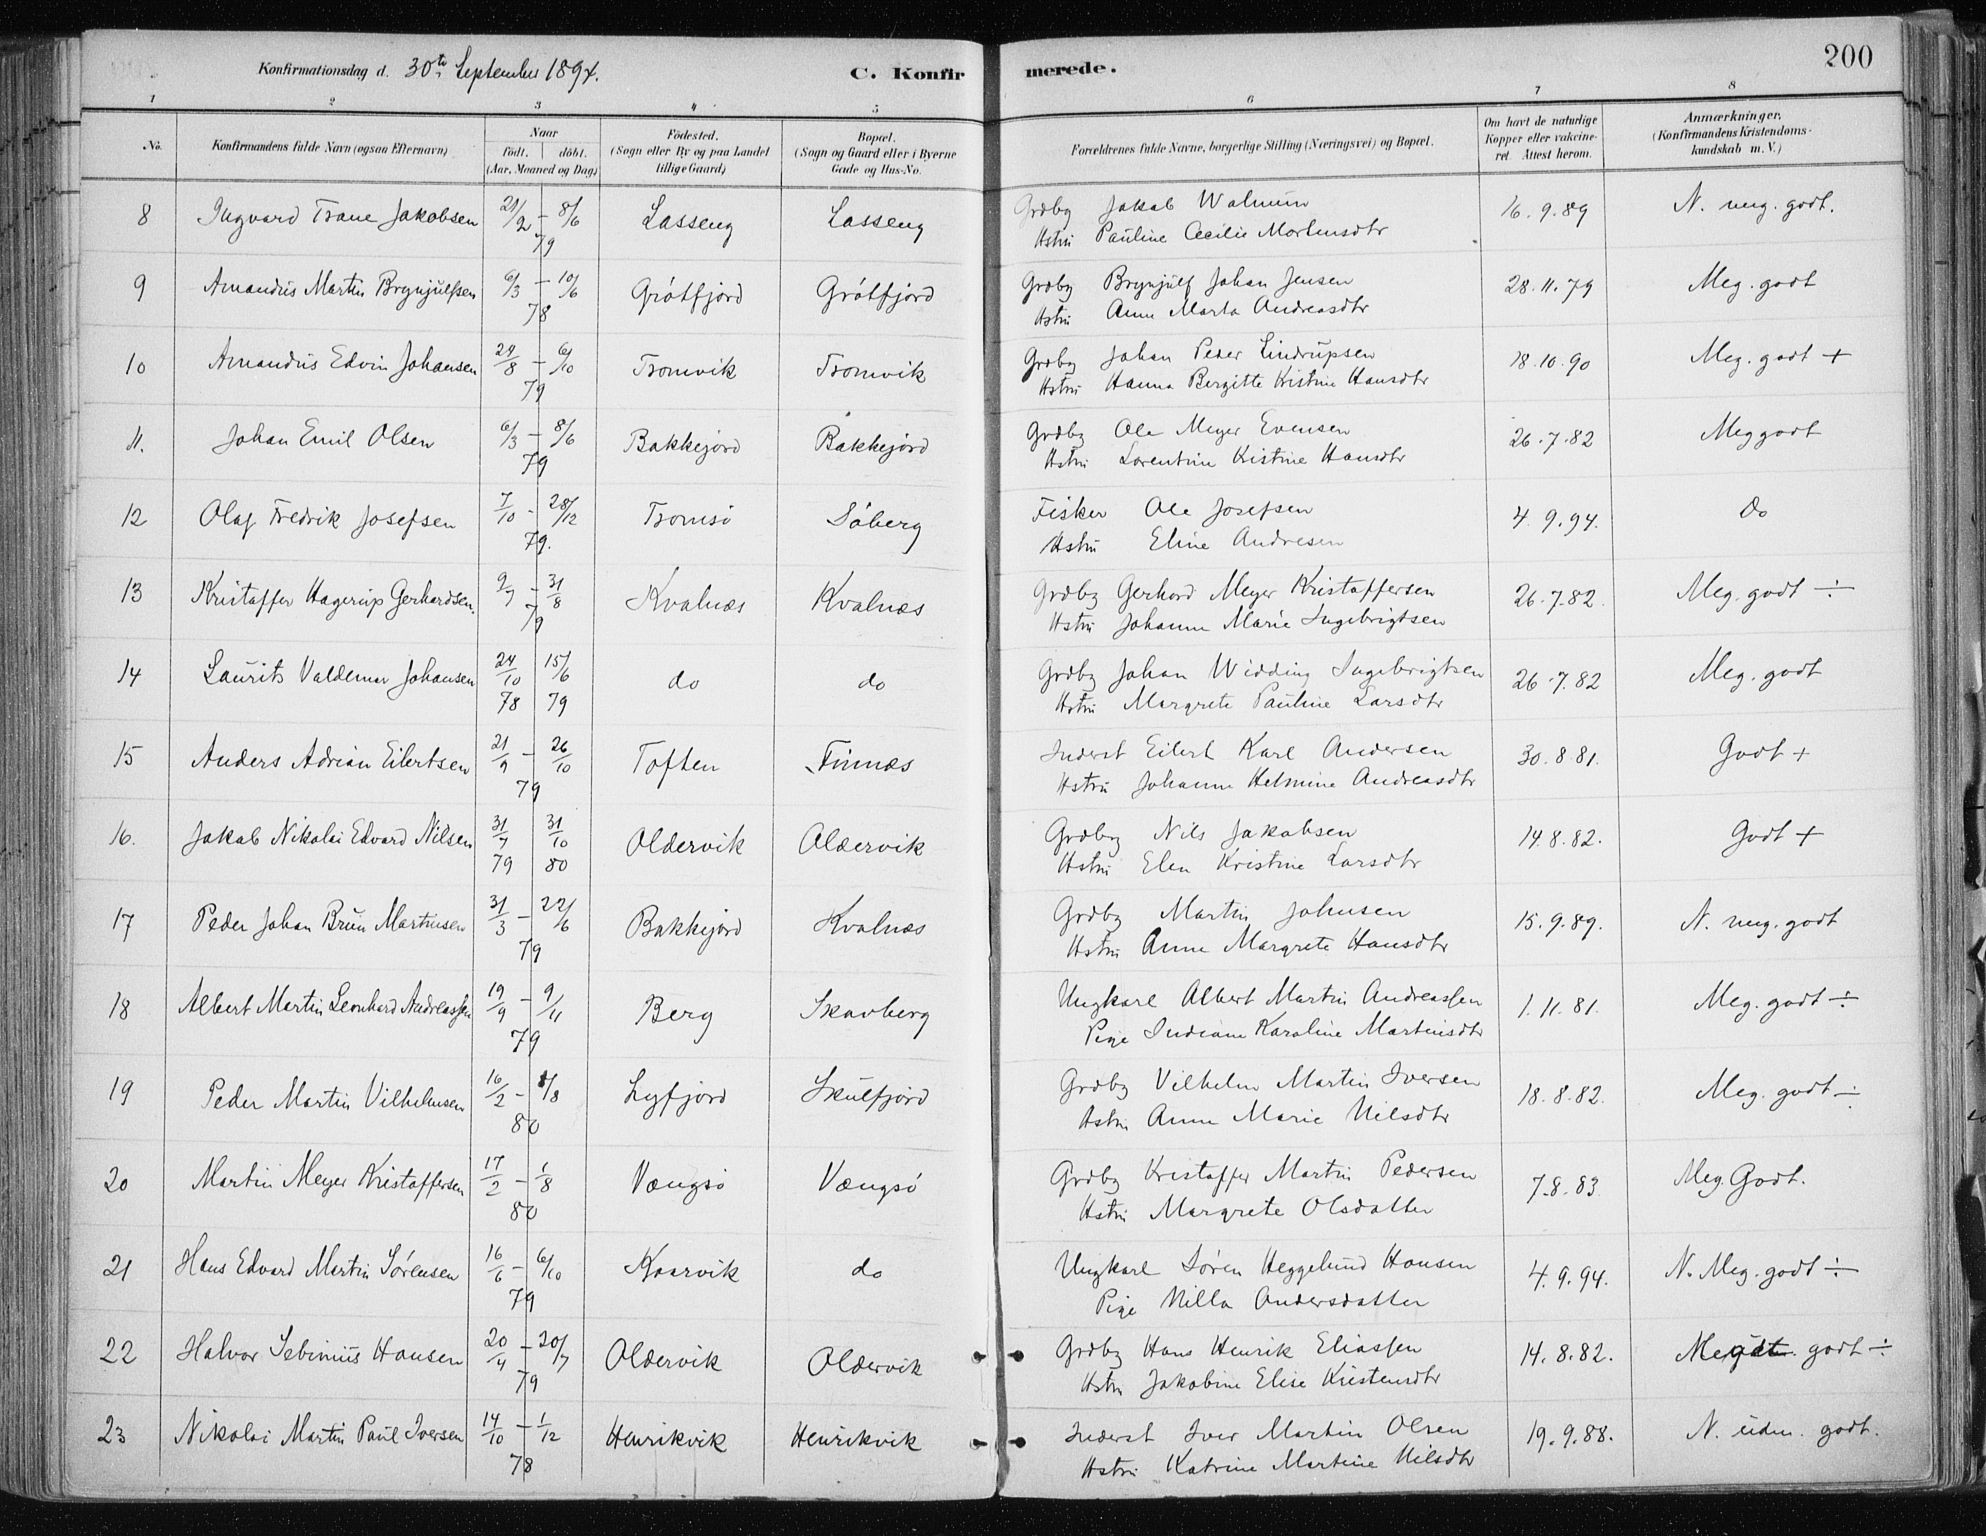 Konfirmationsdag d. 30te September 1894. C. Konfirmerede. 200
1 2 3 4 5 6 7 8
No. Konfirmandens fulde Navn (ogsaa Efternavn) Naar født. døbt. (Aar, Maaned og Dag) Fødested. (Sogn eller By og paa Landet tillige Gaard) Bopæl. (Sogn og Gaard eller i Byerne Gade og Hus-No. Forældrenes fulde Navne, borgerlige Stilling (Næringsvei) og Bopæl. Om havt de naturlige Kopper eller vakcineret. Attest herom. Anmærkninger. (Konfirmandens Kristendomskundskab m. V.)
8 Ingvard Trane Jakobsen 21/2 – 8/6 79 Lasseng Lasseng Grdbg Jakob Walnum 16.9.89 N. meg. godt.
Hstru Pauline Cecilie Mortensdtr
9 Amandus Martin Brynjulfsen 6/3 – 10/6 78 Grøtfjord Grøtfjord Grdbg Brynjulf Johan Jensen 28.11.79 Meg. godt
Hstru Anne Marta Andreasdtr
10 Amandus Edvin Johansen 24/8 – 6/10 79 Tromvik Tromvik Grdbg Johan Peder Lindrupsen 18.10.90 Meg. godt +
Hstru Hanna Bergitte Kistine Hansdtr
11. Johan Emil Olsen 6/3 – 8/6 79 Bakkejord Bakkejord Grdbg Ole Meyer Evensen 26.7.82 Meg godt
Hstru Lorentine Kistine Hansdtr
12 Olaf Fredrik Josefsen 7/10 – 28/12 79. Tromsø Søberg Fisker Ole Josefsen 4.9.94. Do
Hstru Eline Andresen
13 Kristaffer Hagerup Gerhardsen. 9/7 – 31/8 79 Kvalnæs Kvalnæs Grdbg Gerhard Meyer Kristaffersen 26.7.82. Meg. godt ÷
Hstru Johanne Marie Ingebrigtsen
14 Laurits Valdemar Johansen 24/10 78 15/6 79 do do Grdbg Johan Widding Ingebrigtsen 26.7.82 Meg. godt
Hstru Margrete Pauline Larsdtr
15 Anders Adrian Eilertsen 21/9 – 26/10 79 Toften Finnæs Inderst Eilert Karl Andersen 30.8.81. Godt +
Hstru Johanne Helmine Andreasdtr
16. Jakob Nikolai Edvard Nilsen 31/7 79 31/10 80 Oldervik Oldervik Grdbg Nils Jakobsen 14.8.82. Godt +
Hstru Elen Kristine Larsdtr
17 Peder Johan Brun Martinsen 31/3 – 22/6 79 Bakkejord Kvalnæs Grdbg Martin Johnsen 15.9.89. N. meg. godt
Hstru Anne Margrete Hansdtr
18 Albert Martin Leonhard Andreassen 19/9 – 9/11 79 Berg Skavberg Ungkarl Albert Martin Andreassen 1.11.81. Meg. godt ÷
Pige Indiane Karoline Martinsdtr
19 Peder Martin Vilhelmsen 16/2 – /8 80 Lyfjord Skulfjord Grdbg Vilhelm Martin Iversen 18.8.82. Meg. godt ÷
Hstru Anne Marie Nilsdtr
20 Martin Meyer Kristaffersen 17/2 – 1/8 80 Vængsø Vængsø Grdbg Kristaffer Martin Pedersen 7.8.83. Meg. Godt.
Hstru Margrete Olsdatter
21 Hans Edvard Martin Sørensen 16/6 – 6/10 79 Kaarvik do Ungkarl Søren Heggelund Hansen 4.9.94. N. Meg. godt ÷
Pige Nilla Andersdatter
22 Halvor Sebinius Hansen 20/4 – 20/7 79 Oldervik Oldervik Grdbg Hans Henrik Eliassen 14.8.82. Meg godt ÷
Hstru Jakobine Elise Kristensdtr
23 Nikolai Martin Paul Iversen 14/10 – 1/12 78 Henrikvik Henrikvik Inderst Iver Martin Olsen 19.9.88. N. uden. godt.
Hstru Katrine Martine Nilsdtr